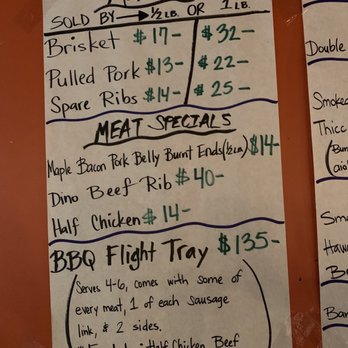 SOLD BY → 1/2 LB. OR 1 LB.
Brisket $17- $32-
Pulled Pork $13- $22-
Spare Ribs $14- $25-
MEAT SPECIALS
Maple Bacon Pork Belly Burnt Ends (1/2 LB.) $14-
Dino Beef Rib $40-
Half Chicken $14-
BBQ Flight Tray $135-
(Serves 4-6, comes with some of
every meat, 1 of each sausage
link, & 2 sides.
Half Chicken Beef
Double
Smoked
Thicc
Smo
Haw
B
Ban